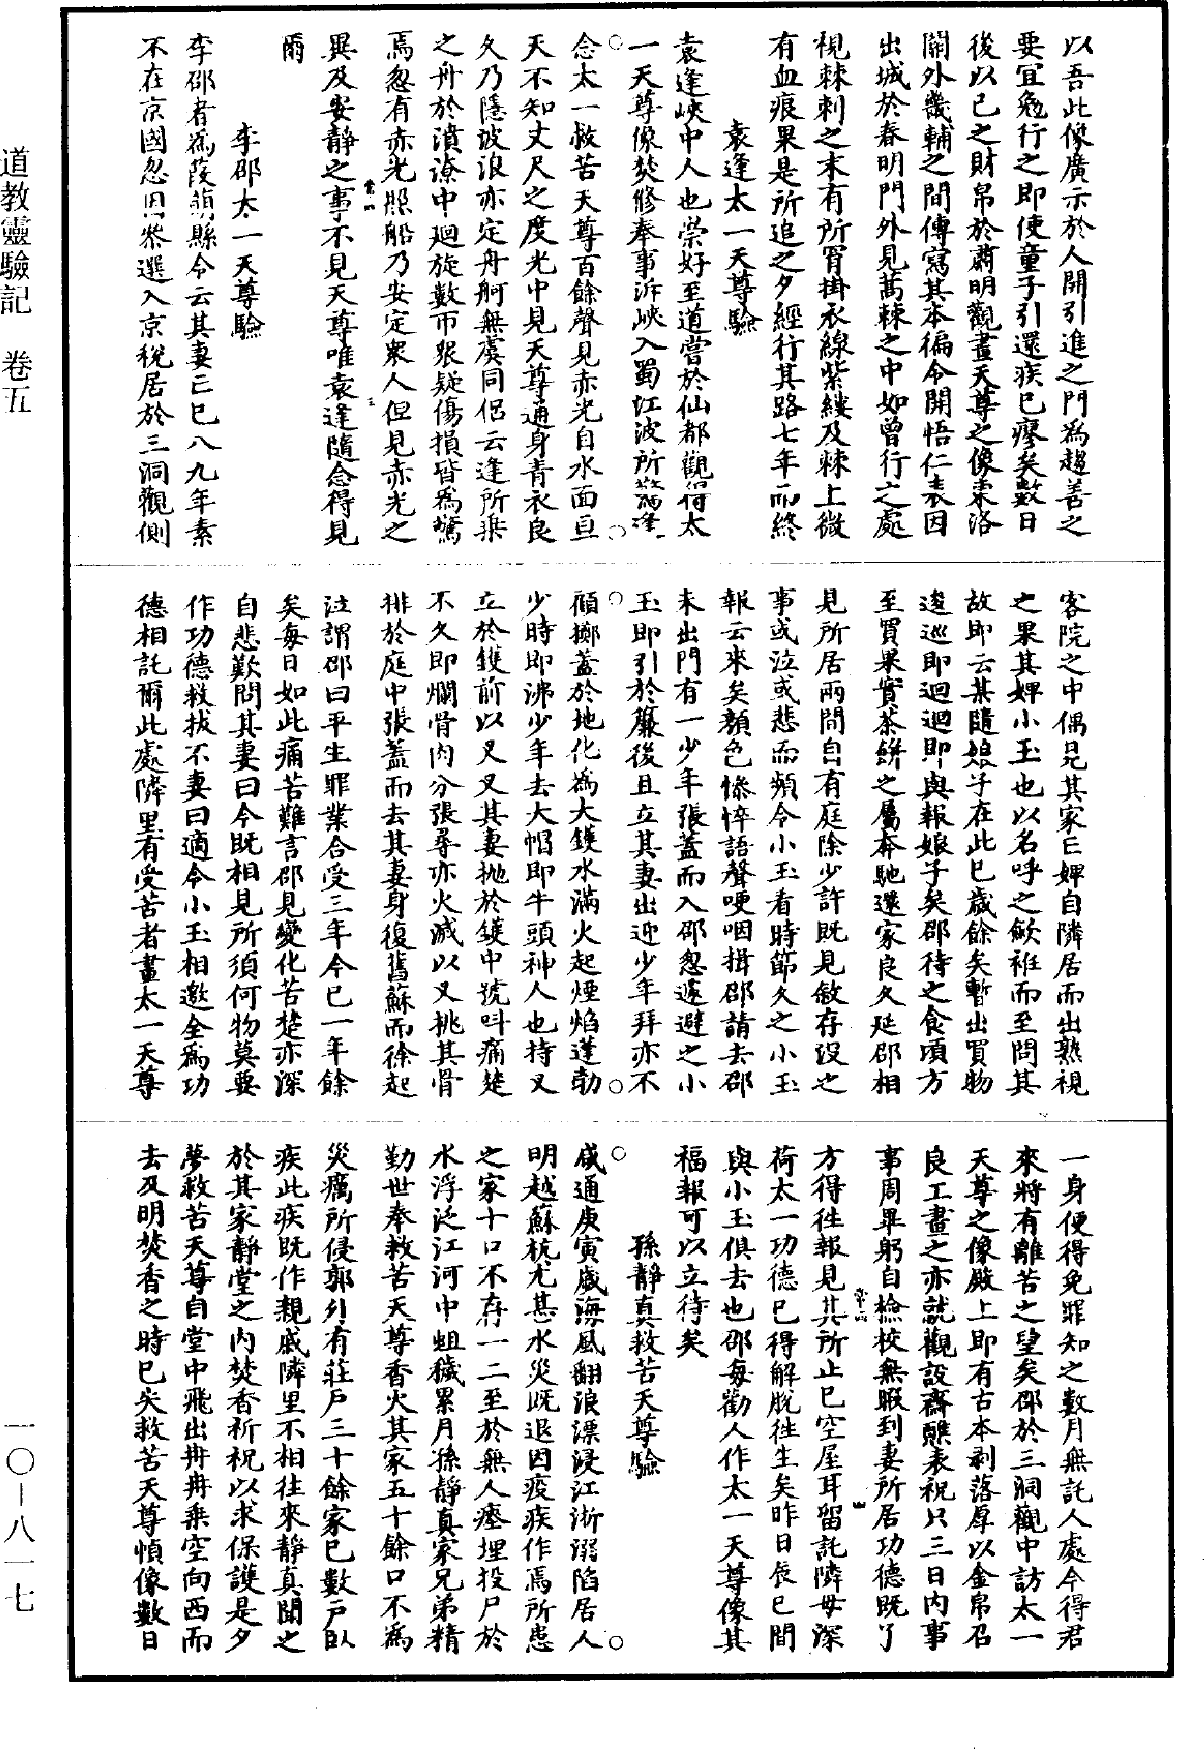 以吾此像廣示於人開引進之門為趨善之
要宜勉行之即使童子引還疾已瘳矣數日
後以已之財帛於肅明觀畫天尊之像東洛
關外畿輔之間傳寫其本徧令開悟仁表因
出城於春明門外見藂棘之中如曾行之處
視棘刺之末有所罥掛衣線紫縷及棘上微
有血痕果是所追之夕經行其路七年而終
袁逢太一天尊驗
袁逢峽中人也崇好至道嘗於仙都觀得太
一天尊像焚修奉事泝峽入蜀江波所驚逢
念太一救苦天尊百餘聲見赤光自水面亘
天不知丈尺之度光中見天尊通身青衣良
久乃隱波浪亦定舟舸無虞同侶云逢所乘
之舟於濆潦中迴旋數帀衆疑傷損皆為驚
焉忽有赤光照船乃安定衆人但見赤光之
異及安靜之事不見天尊唯袁逢隨念得見
爾
李邵太一天尊驗
李邵者為葭萌縣令云其妻亡已八九年素
不在京國忽因參選入京稅居於三洞觀側
客院之中偶見其家亡婢自隣居而出熟視
之果其婢小玉也以名呼之歛袵而至問其
故即云某隨娘子在此已歲餘矣暫出買物
逡巡即迴迴即與報娘子矣邵待之食頃方
至買果實茶餅之屬奔馳還家良久延邵相
見所居兩間自有庭除少許既見敘存沒之
事或泣或悲而頻令小玉看時節久之小玉
報云來矣顏色慘悴語聲哽咽揖邵請去邵
未出門有一少年張蓋而入邵忽遽避之小
玉即引於簾後且立其妻出迎少年拜亦不
顧擲蓋於地化為大鑊水滿火起煙焰蓬勃
少時即沸少年去大帽即牛頭神人也持叉
立於鑊前以叉叉其妻拋於鑊中號呌痛楚
不久即爛骨肉分張尋亦火滅以叉挑其骨
排於庭中張蓋而去其妻身復舊蘇而徐起
泣謂邵曰平生罪業合受三年今已一年餘
矣每日如此痛苦難言邵見變化苦楚亦深
自悲歎問其妻曰今既相見所須何物莫要
作功德救拔不妻曰適令小玉相邀全為功
德相託爾此處隣里有受苦者畫太一天尊
一身便得免罪知之數月無託人處今得君
來將有離苦之望矣邵於三洞觀中訪太一
天尊之像殿上即有古本剥落厚以金帛召
良工畫之亦就觀設齋醮表祝只三日內事
事周畢躬自檢校無暇到妻所居功德既了
方得往報見其所止已空屋耳留託隣母深
荷太一功德已得解脫往生矣昨日辰巳間
與小玉俱去也邵每勸人作太一天尊像其
福報可以立待矣
孫靜真救苦天尊驗
咸通庚寅歲海風翻浪漂浸江浙溺陷居人
明越蘇杭尤甚水災既退因疫疾作焉所患
之家十口不存一二至於無人瘞埋投尸於
水浮泛江河中蛆穢累月孫靜真家兄弟精
勤世奉救苦天尊香火其家五十餘口不為
災癘所侵郭外有莊戶三十餘家已數戶臥
疾此疾既作親戚隣里不相往來靜真聞之
於其家靜堂之內焚香祈祝以求保護是夕
夢救苦天尊自堂中飛出冉冉乘空向西而
去及明焚香之時已失救苦天尊幀像數日
道教靈驗記 卷五
一〇—八一七